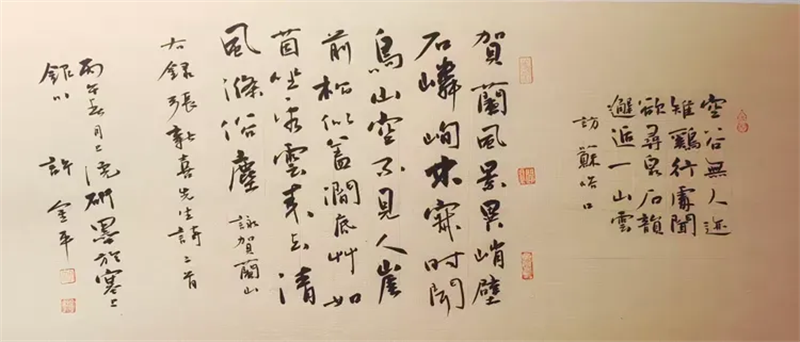 空谷無人迹
雉鷄行處聞
欲尋泉石韻
邂逅一山雲
訪蘇峪口
賀蘭風景異峭壁
石嶙峋林寂时闻
鳥山空不見人崖
前松似蓋澗底艸如
茵坐看雲来去清
風滌俗塵 詠賀蘭山
右録張喜先生詩二首
丙午春月上浣研墨於塞上
銀川 許金平